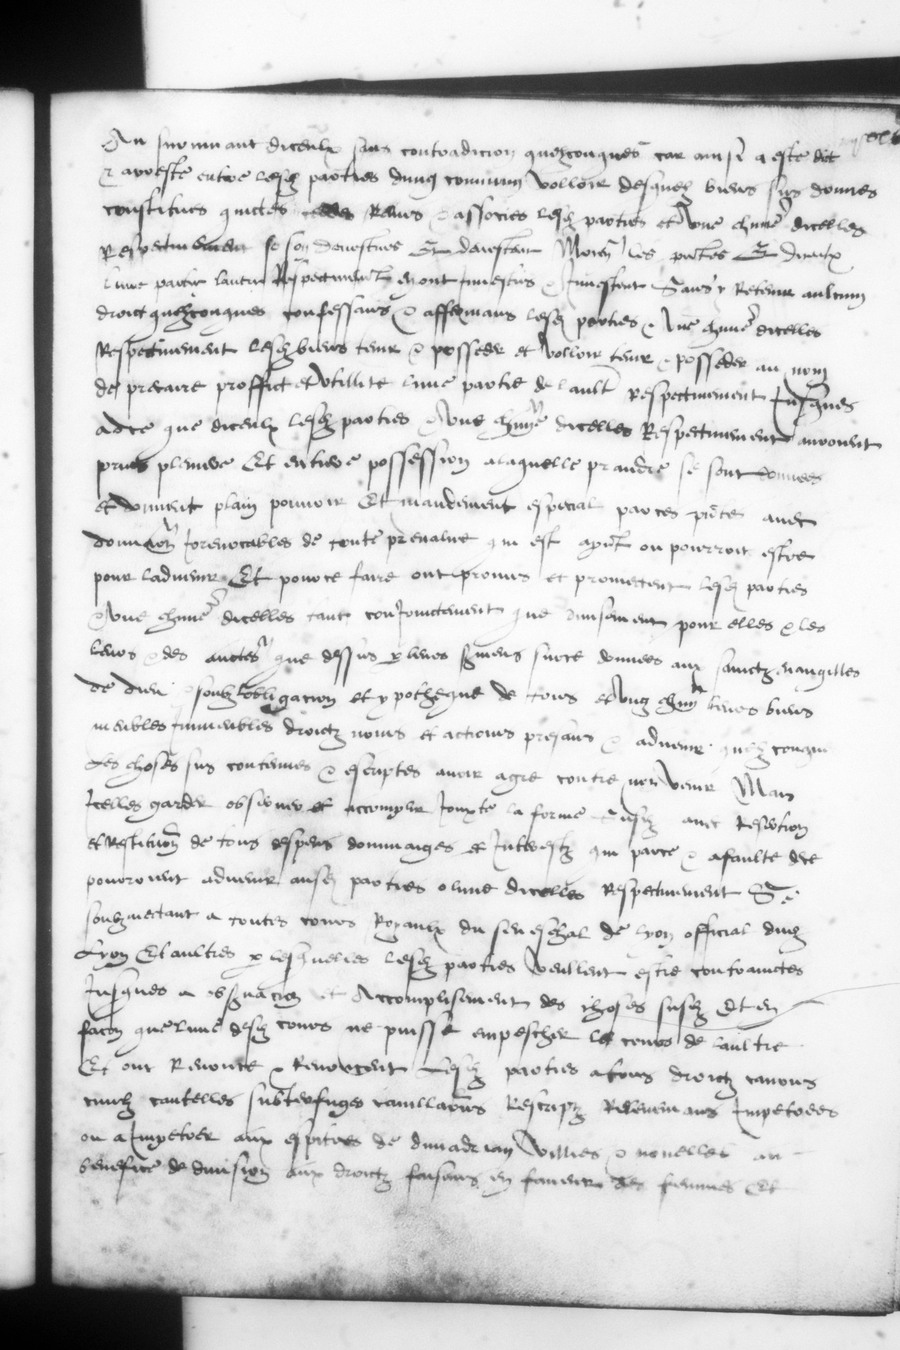 Au survivant diceulx sans contradicion quezconques car ainsi a este dit
& areste entre lesd parties dung commun volloir desquelz biens sus donnes
constitues quictes cedes remis & associes lesd parties et une chune dicelles
Respectivement se son devestues Et devestent Moien les pntes Et diceulx
lune partie lautre Respectivemt en ont investus & Investent Sans y Retenir aulcun
droict quezconques confessans & affermans lesd parties & une chune dicelles
Respectivement lesd biens tenir & posseder et volloir tenir & posseder au nom
de precaire proffict et utillite lune partie de laultre respectivement Jusques
ad ce que diceulx lesd parties & une chune dicelles Respectivement auroent
prins pleniere Et entiere possession a laquelle prandre se sont donnees
et donnent plain pouvoir Et mandement especial par ces pntes avec
donnaon Irrevocables de toute prevalue qui est apnt ou pourroit estre
pour ladvenir Et pour ce faire ont promis et promectent lesd parties
& une chune dicelles tant conjoinctement que divisement pour elles & les
leurs & des auctes que dessus p leurs sermens sur ce donnes aux sainctz evangilles
de dieu & soubz lobligacion et ypotheque de tous et ung chun leurs biens
meubles immeubles droictz noms et actions presans & advenir quelzconques
Les choses sus contenues & escriptes avoir agre contre non venir Mais
Icelles garder observer et accomplir Jouxte la forme susd avec Refection
et Restituon de tous despens dommaiges et Interestz qui par ce & a faulte de ce
pourroient advenir ausd parties o lune dicelles Respectivement Se
soubzmectant a toutes cours Royaulx du seneschal de lyon official dud
Lyon Et aultres p lesquelles lesd parties veullent estre contrainctes
Jusques a observacion et Accomplissement des choses susd Et en
facon que lune desd cours ne puisse empescher le cours de laultre
Et ont Renonce & Renoncent Lesd parties a tous droictz canons
civilz cautelles subterfuges cavillaons Rescriptz Relevemans Impetrees
ou a Impetrer aux espitres de div adrian vielles & nouelles au
benefice de division aux droictz faisans en faveur des femmes Et